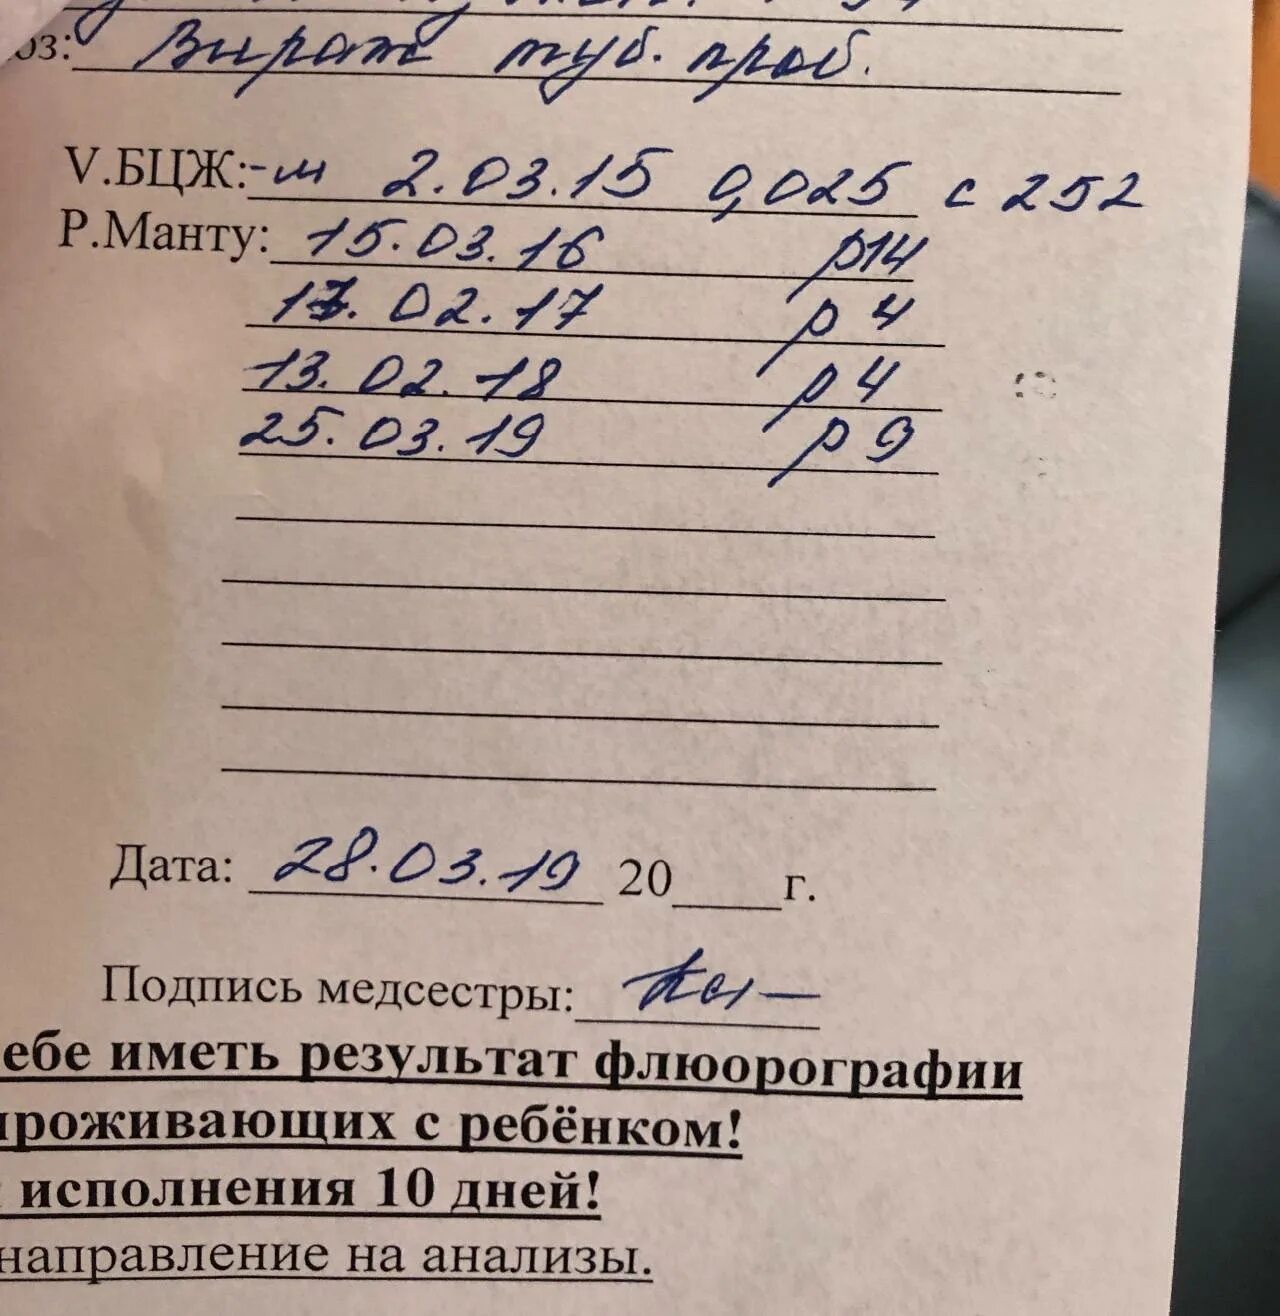 оз: Вираж туб. проб.
V.БЦЖ:-м 2.03.15 0,025 с 252
Р.Манту: 15.03.16 р14
17.02.17 р 4
13.02.18 р 4
25.03.19 р 9
Дата: 28.03.19 20____г.
Подпись медсестры:
ебе иметь результат флюорографии
проживающих с ребёнком!
исполнения 10 дней!
направление на анализы.